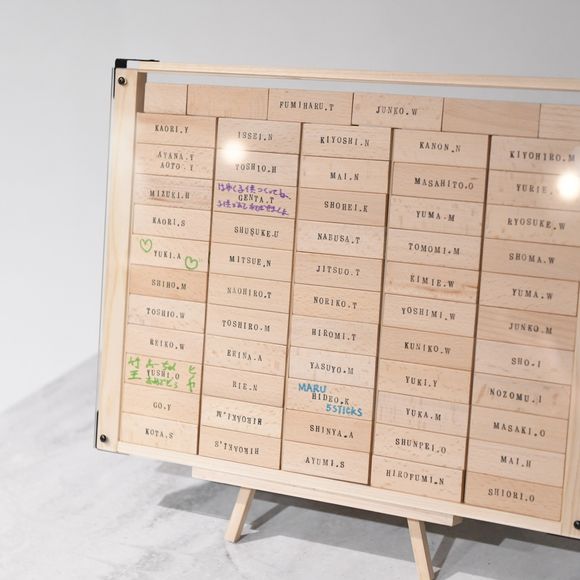 FUMIHARU.T
JUNKO.W
KAORI.Y
AYANA.Y
AOTO.Y
MIZUKI.H
KAORI.S
YUKI.A
SHIHO.M
TOSHIO.W
REIKO.W
YUSHI.O
GO.Y
KOTA.S
ISSEI.N
YOSHIO.H
GENTA.T
SHUSUKE.U
MITSUE.N
NAOHIRO.T
TOSHIRO.M
ERINA.A
RIE.N
HIROAKI.M
HIROAKI.S
KIYOSHI.N
MAI.N
SHOHEI.K
NABUSA.T
JITSUO.T
NORIKO.T
HIROMI.T
YASUYO.M
MARU
HIDEO.K
5STICKS
SHINYA.A
AYUMI.S
KANON.N
MASAHITO.O
YUMA.M
TOMOMI.M
KIMIE.W
YOSHIMI.W
KUNIKO.W
YUKI.Y
YUKA.M
SHUNPEI.O
HIROFUMI.N
KIYOHIRO.M
YURIE.
RYOSUKE.W
SHOMA.W
YUMA.W
JUNKO.M
SHO.I
NOZOMU.I
MASAKI.O
MAI.H
SHIORI.O